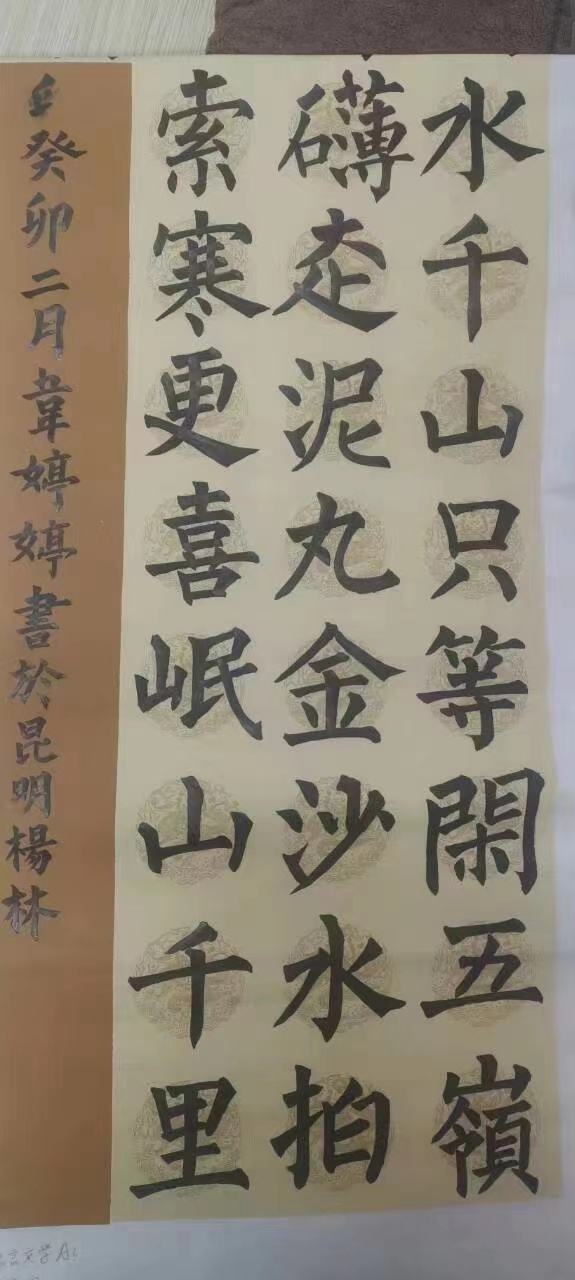 水千山只等閑五嶺
礴走泥丸金沙水拍
索寒更喜岷山千里
癸卯二月韋婷婷書於昆明楊林
言文学A